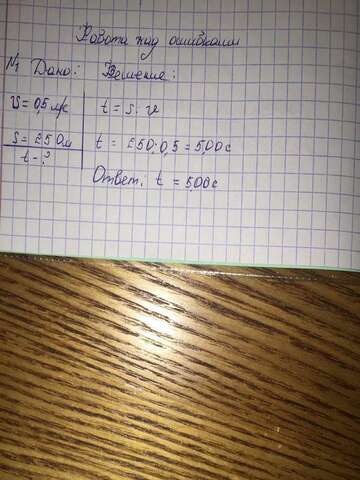 Работа над ошибками
№1 Дано: Решение:
v = 0,5 м/с t = s : v
s = 250м t = 250:0,5 = 500 с
t - ? Ответ: t = 500с